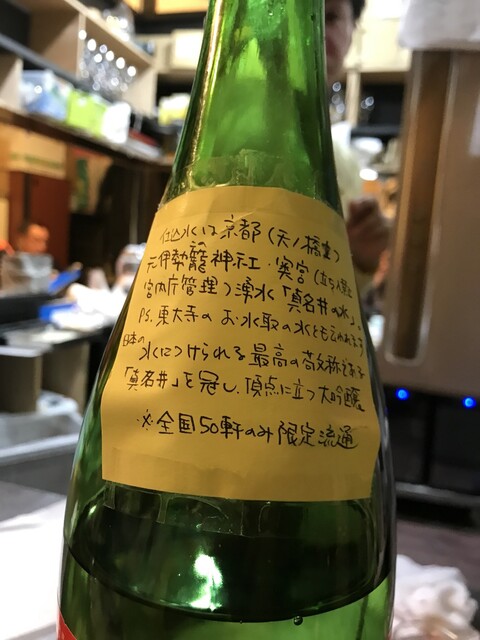 仕込水は京都(天ノ橋立)
元伊勢籠神社・奥宮(立ち入禁止
宮内庁管理)湧水「真名井の水」。
PS.東大寺のお水取の水とも云われる
日本の水につけられる最高の敬称である
「真名井」を冠し、頂点に立つ大吟醸
※全国50軒のみ限定流通